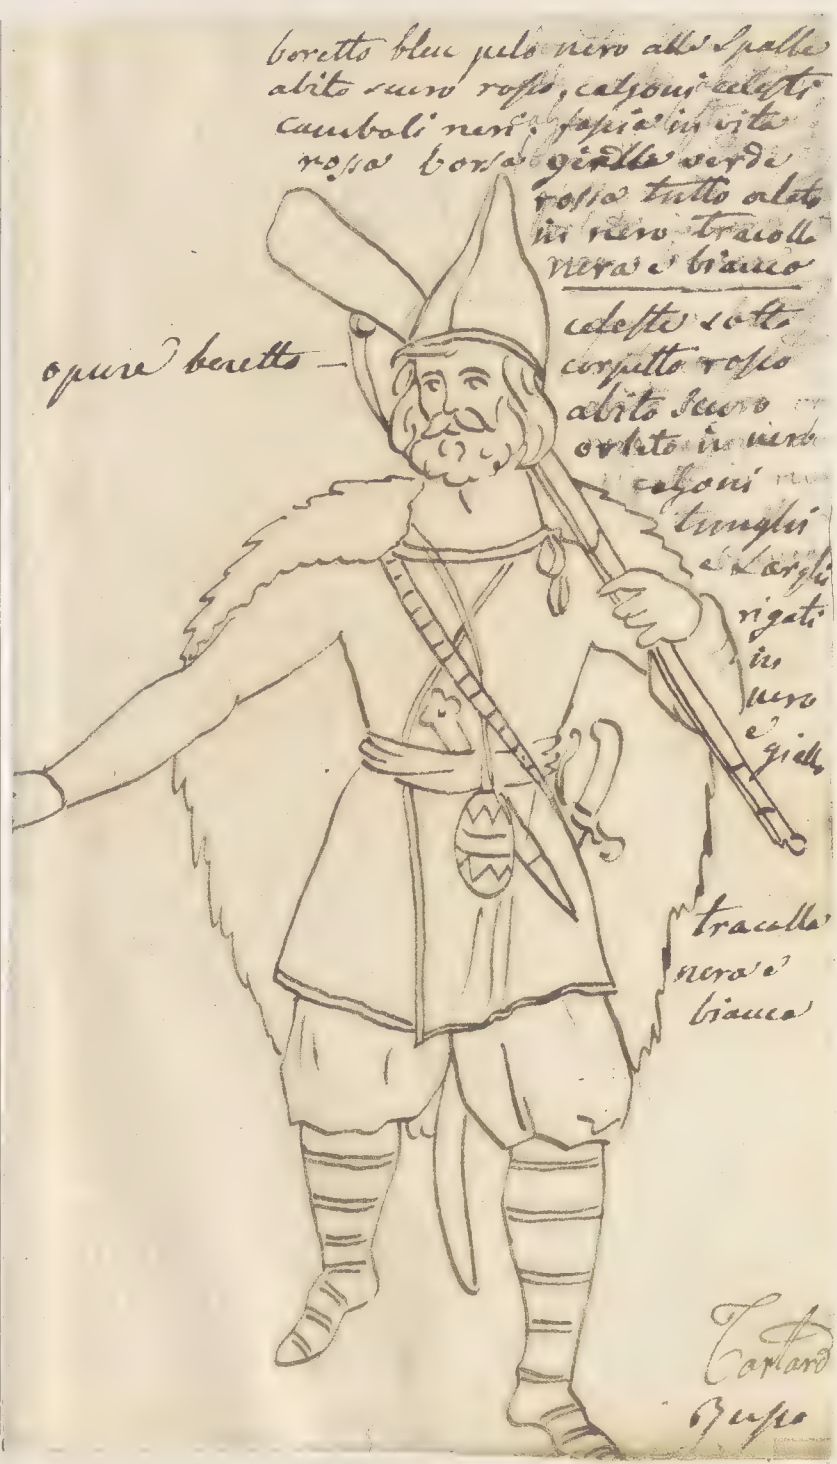 boretto bleu pelo nero alle Spalle
abito scuro rosso, calzoni celesti
camboli neri. fascia in vita
rossa borsa gialla verde
rossa tutto orlato
in nero tracolla
nera e bianco
celeste sotto
corpetto rosso
abito Scuro
orlato in nero
calzoni
lunghi
e Larghi
rigati
in
nero
e
giallo
opure beretto –
tracolla
nera e
bianca
Tartaro
Russo